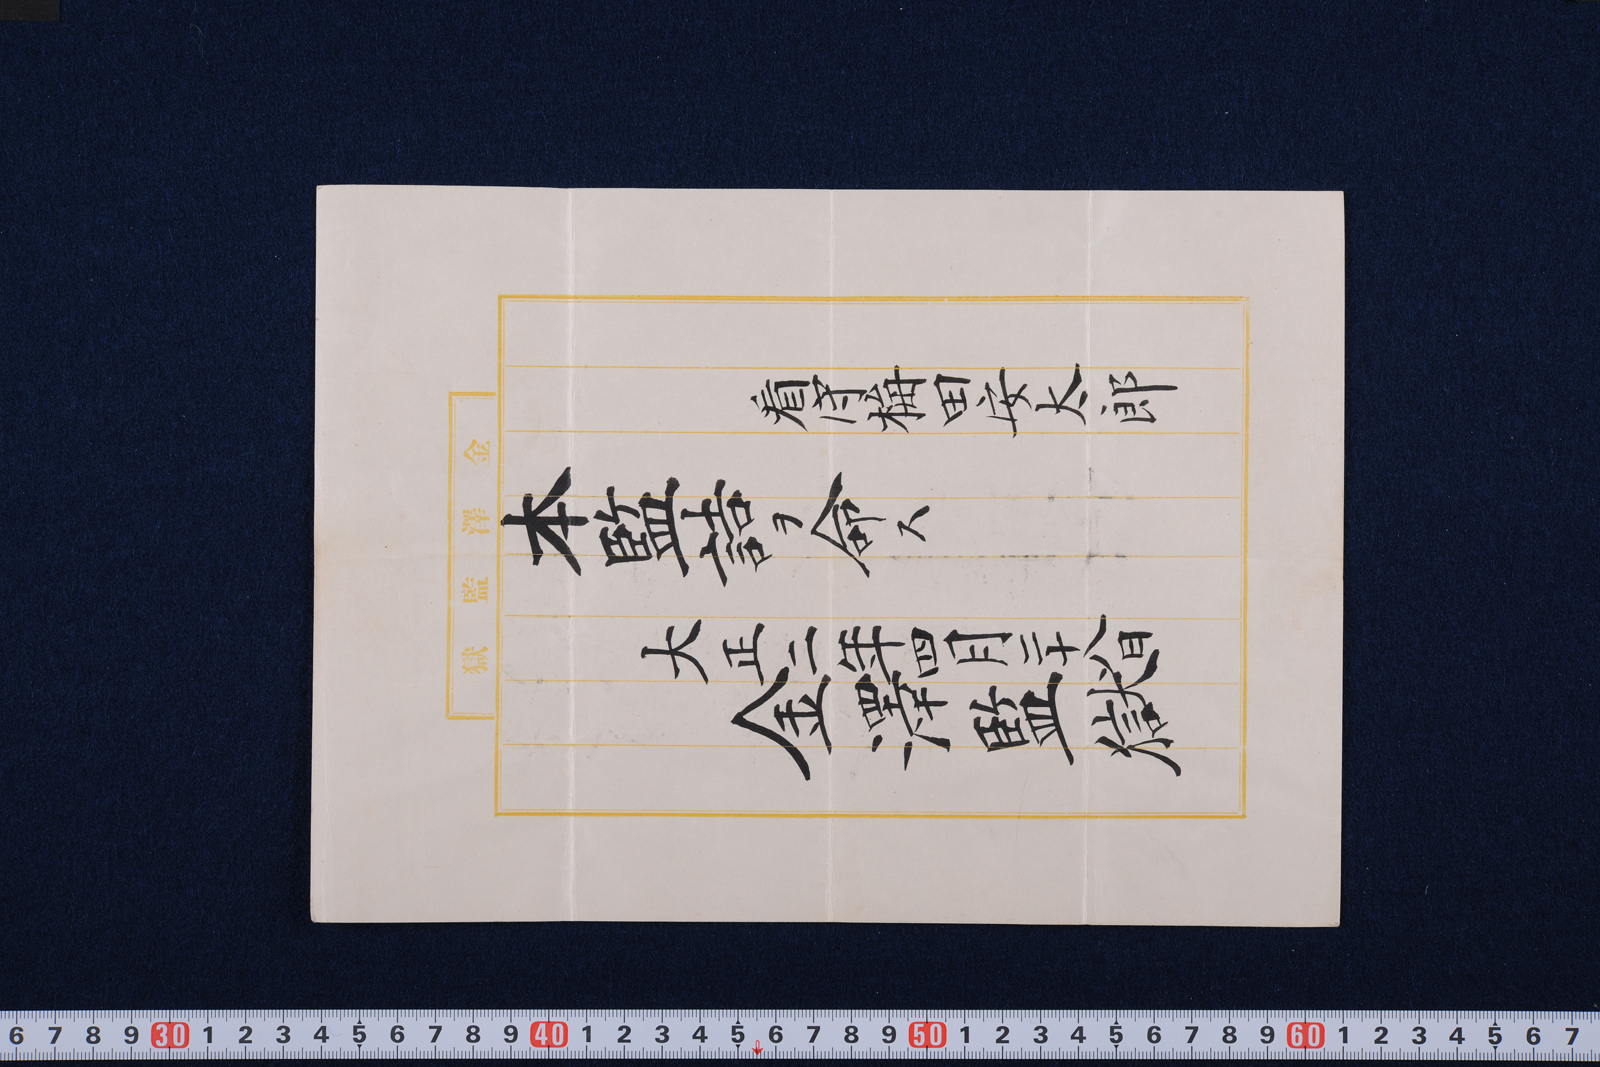 金澤監獄
看守梅田安太郎
本監詰ヲ命ス
大正二年四月二十八日
金澤監獄
6 7 8 9 30 1 2 3 4 5 6 7 8 9 40 1 2 3 4 5 6 7 8 9 50 1 2 3 4 5 6 7 8 9 60 1 2 3 4 5 6 7